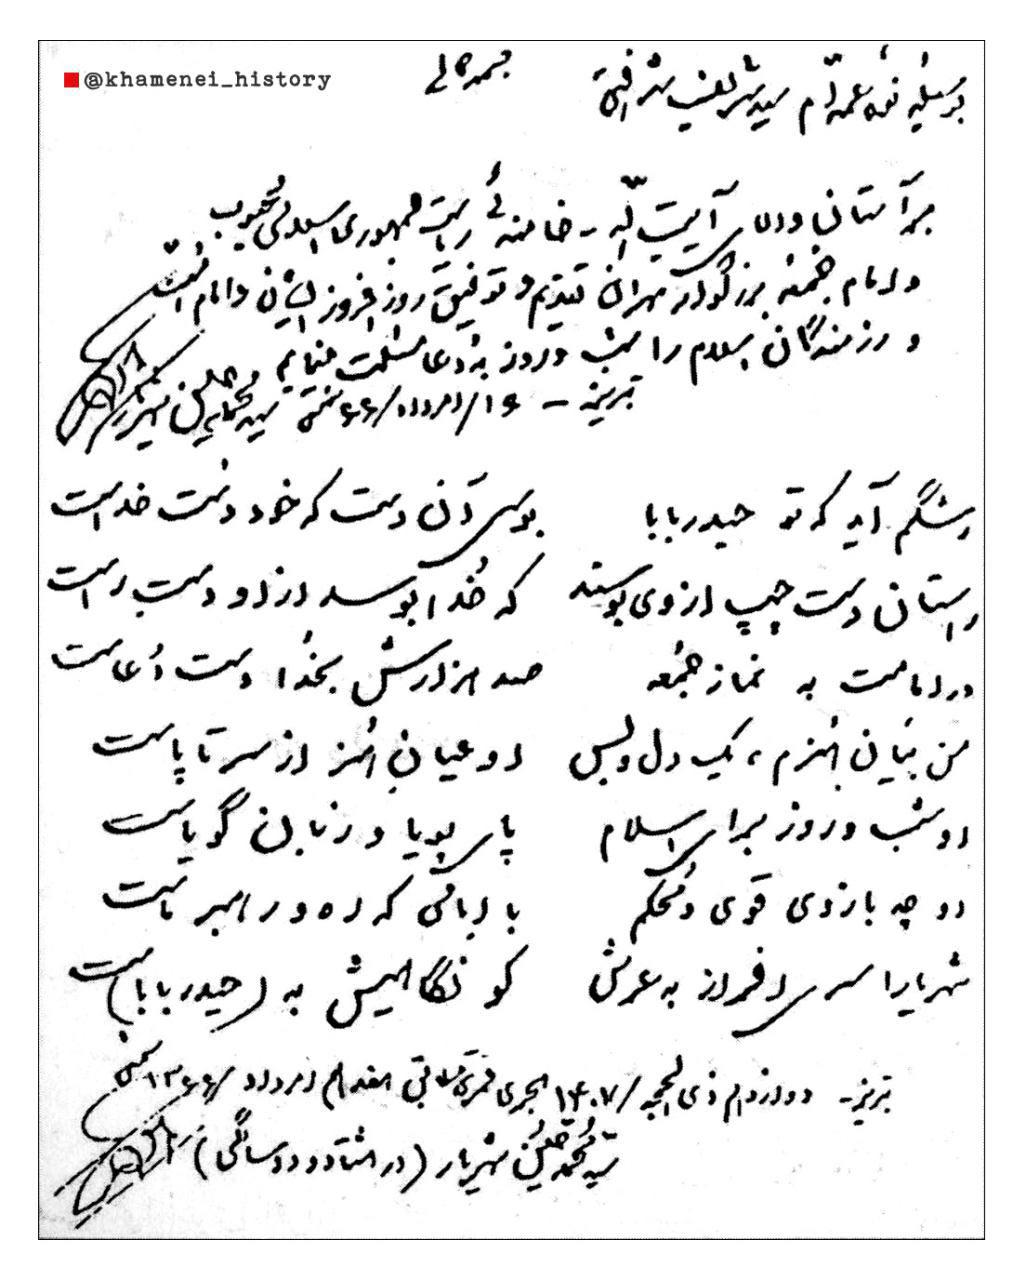 @khamenei_history
بسمه تعالی
بوسیله نوه عمه‌ام سید شریف
بر آستان والای آیت الله - خامنه‌ئی ریاست جمهوری اسلامی محبوب
و امام جمعه بزرگوار تهران تقدیم و توفیق روزافزون ایشان و امام امت
و رزمندگان اسلام را شب و روز به دعا مسئلت مینمایم
تبریز - ۱۶/امرداد/۶۶ شمسی سید محمدحسین شهریار
رشگم آید که تو حیدربابا
بوسی آن دست که خود دست خداست
راستان دست چپ از وی بوسند
که خدا بوسد از او دست راست
در امامت به نماز جمعه
صد هزارش بخدا دست دعاست
من بیان هنرم، یک دل و بس
او عیان هنر از سر تا پاست
او شب و روز برای اسلام
پای پویا و زبان گویاست
او چه بازوی قوی و محکم
با امامی که ره و رهبر ماست
شهریارا سری افراز به عرش
کو نگاهیش به (حیدربابا)ست
تبریز - دوازدهم ذی الحجه /۱۴۰۷ هجری قمری مطابق هفدهم امرداد /۱۳۶۶ شمسی
سید محمد حسین شهریار (در هشتاد و دو سالگی)